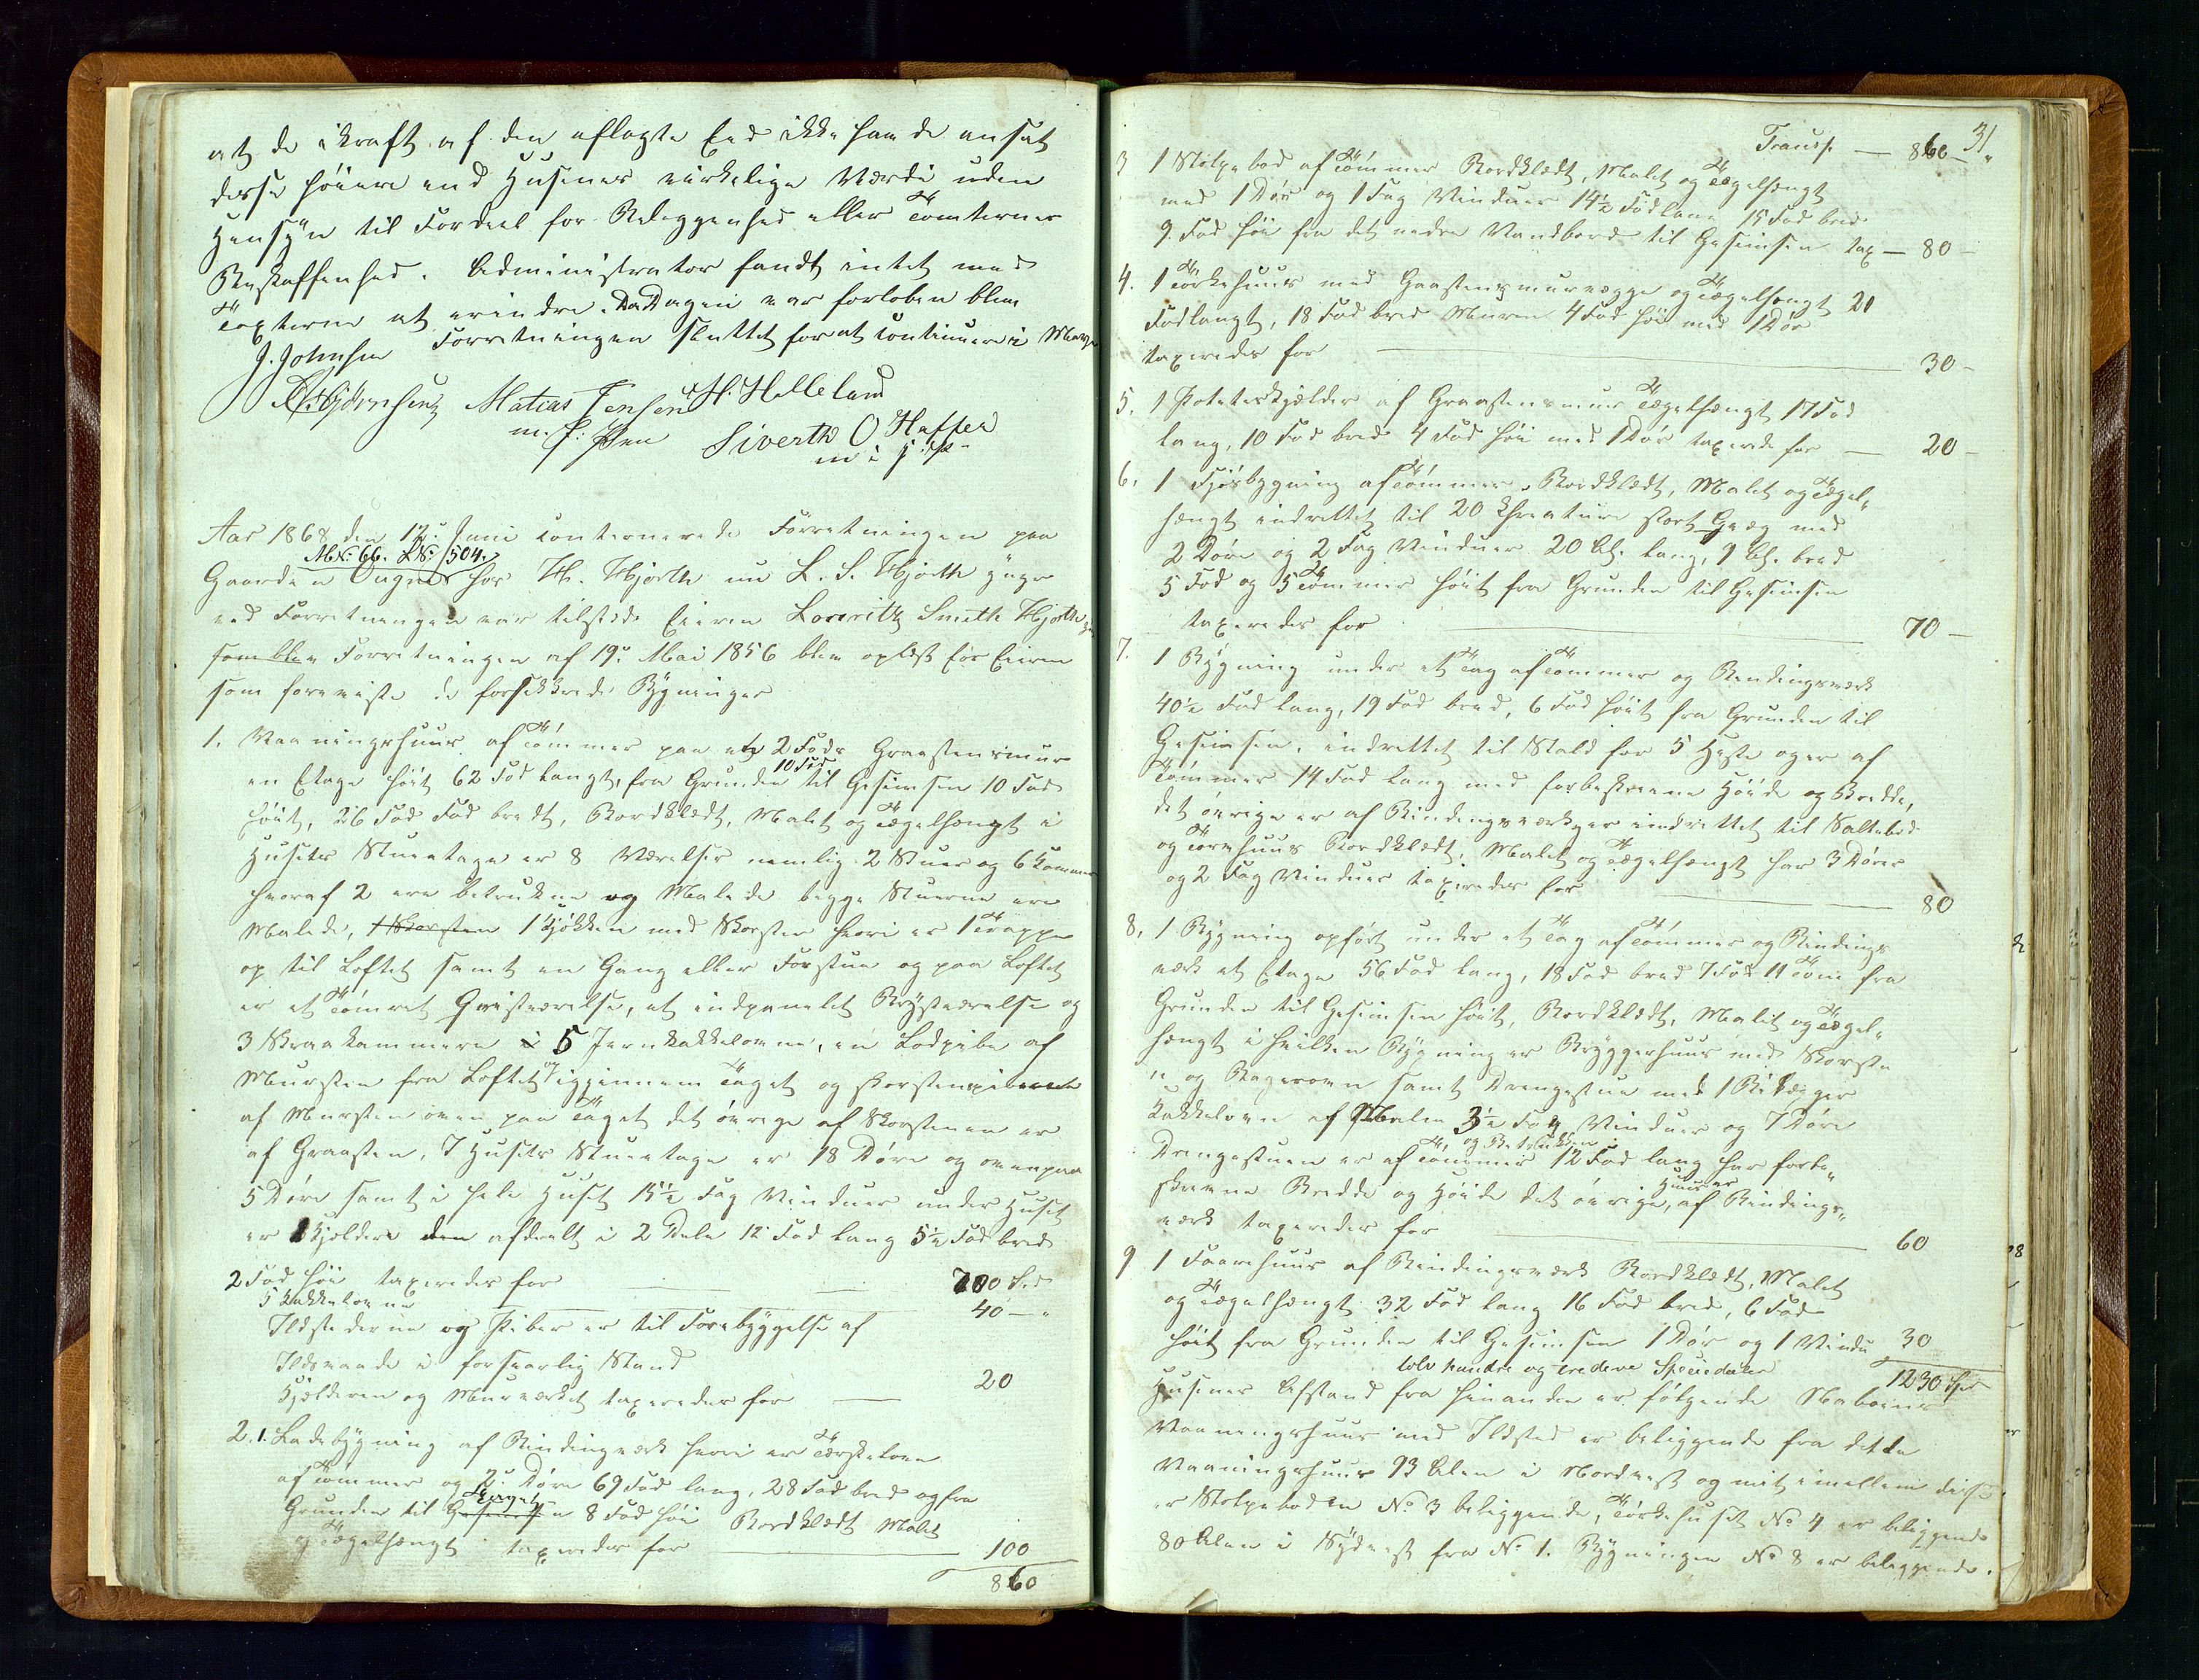 at de i kraft af den aflagte Eed ikke havde ansat
disse høiere end Husenes virkelige Værdi uden
Hensÿn til Fordeel for Beleggenhed eller Tomternes
Beskaffenhed. Administrator fandt intet med
Taxterne at erindre. Da Dagen var forløben blev
Forretningen sluttet for at Continuere i Morgen
J. Johnsen
Bjørnsen Matias Jensen H. Helleland
m. f: Pen Siverth O Hafsed
m i f: P-
Aar 1868 den 12: Juni Continuerede Forretningen paa
MN: 66. LN: 504.
Gaarden Ougne hos H. Hjorth nu L. S. Hjorth ÿngre
ved Forretningen var tilstede Eieren Lowritz Smith Hjorth
som blev Forretningen af 19: Mai 1856 blev oplæst for Eieren
som foreviste de forsikkrede Bÿgninger
1. Vaaningshuus af Tømmer paa etz 2 Fods Graasteensmuur
en Etage høit 62 Fod langt, fra Grunden til Gesimsen 10 Fod
10 Fod
høit, 26 Fod Fod bredt, Bordklædt, Malet og Tægelhængt i
Husets Stueetage er 8 Værelser nemlig 2 Stuer og 6 Kammer
hvoraf 2 ere betrukne og Malede begge Stuerne ere
Malede, 1 Skorsten 1 Kjøkken med Skorsten hvori er 1 Trappe
op til Loftet samt en Gang eller Forstue og paa Loftet
er et Tømret Qvistværelse, et indpanelet Brÿstværelse og
3 Skraakammere i 5 Jernkakkelovne, en Lodpibe af
Mursten fra Loftet igjennem Taget og skorstenspiben
af Mursten oven paa Taget det øvrige af Skorstenen er
af Graasten, I Husets Stueetage er 18 Døre og ovenpaa
5 Døre samt i hele Huset 15½ Fag Vinduer under Huset
er 1 Kjelder den afdeelt i 2 Dele 12 Fod lang 5½ Fod bred
2 Fod høi taxeredes for — — 700 Spd
5 Kakkelovne — 40 — "
Ildstederne og Piber er til Forebÿggelse af
Ildsvaade i forsvarlig Stand
Kjelderen og Murværket taxeredes for — 20
2. 1. Ladebÿgning af Bindingværk hvori er Tærskeloen
af Tømmer og 2: Døre 69 Fod lang, 28 Fod bred og fra
Taget
Grunden til Gesimsen 8 Fod høi Bordklædt Malet
og Tægelhængt taxeredes for — 100
860
31
Transp. — 860 — "
3 1 Stolpebod af Tømmer Bordklædt, Malet og Tægelhængt
med 1 Dør og 1 Fag Vinduer 14½ Fod lang 15 Fod bred
9 Fod høi fra det nedre Vandbord til Gesimsen tax — 80 —
4. 1 Tørkehuus med Graasteensmurvægge og Tægelhængt 20
Fod langt, 18 Fod bred Muren 4 Fod høi med 1 Dør
taxeredes for — 30 —
5. 1 Poteteskjelder af Graasteensmuur Tægelhængt 17 Fod
lang, 10 Fod bred 4 Fod høi med 1 Dør taxerede for — 20 —
6. 1 Fjøsbygning af Tømmer, Bordklædt, Malet og Tægel"
hængt indrettet til 20 Kreature stort Qvæg med
2 Døre og 2 Fag Vinduer 20 Al. lang, 9 Al. bred
5 Fod og 5 Tommer høit fra Grunden til Gesimsen
taxeredes for — 70 —
7. 1 Bÿgning under et Tag af Tømmer og Bindingsværk
40½ Fod lang, 19 Fod bred, 6 Fod høit fra Grunden til
Gesimsen, indrettet til Stald for 5 Heste og er af
Tømmer 14 Fod lang med forbeskrevne Høide og Bredde,
det øvrige er af Bindingsværk er indrettet til Saltebod
og Tørvhuus Bordklædt, Malet og Tægelhængt har 3 Døre
og 2 Fag Vinduer taxeredes for — 80
8, 1 Bÿgning opført under et Tag af Tømmer og Bindings
værk et Etage 56 Fod lang, 18 Fod bred 7 Fod 11 Tom fra
Grunden til Gesimsen høit, Bordklædt, Malet og Tægel"
hængt i hvilken Bÿgning er Brÿggerhuus med Skorste
n og Bagerovn samt Drengestue med 1 Bilægger
Kakkelovn af Malm 3½ Fag Vinduer og 7 Døre
og Betrukken
Drengestuen er af Tømmer 12 Fod lang har forbe"
Huus er
skrevne Bredde og Høide det øvrige, af Bindings"
værk taxeredes for — 60
9 1 Faarehuus af Bindingsværk Bordklædt, Malet
og Tægelhængt 32 Fod lang 16 Fod bred, 6 Fod
høit fra Grunden til Gesimsen 1 Dør og 1 Vindu 30
tolv hundre og tredeve Speciedaler 1230 Spd
Husenes Afstand fra hinanden er følgende Naboens
Vaaningshuus med Ildsted er beliggende fra dette
Vaaningshuus 93 Alen i Nordvest og mit imellem disse
er Stolpeboden No 3 beliggende, Tørkehuset No 4 er beliggende
80 Alen i Sÿdvest fra No 1. Bÿgningen No 8 er beliggende.